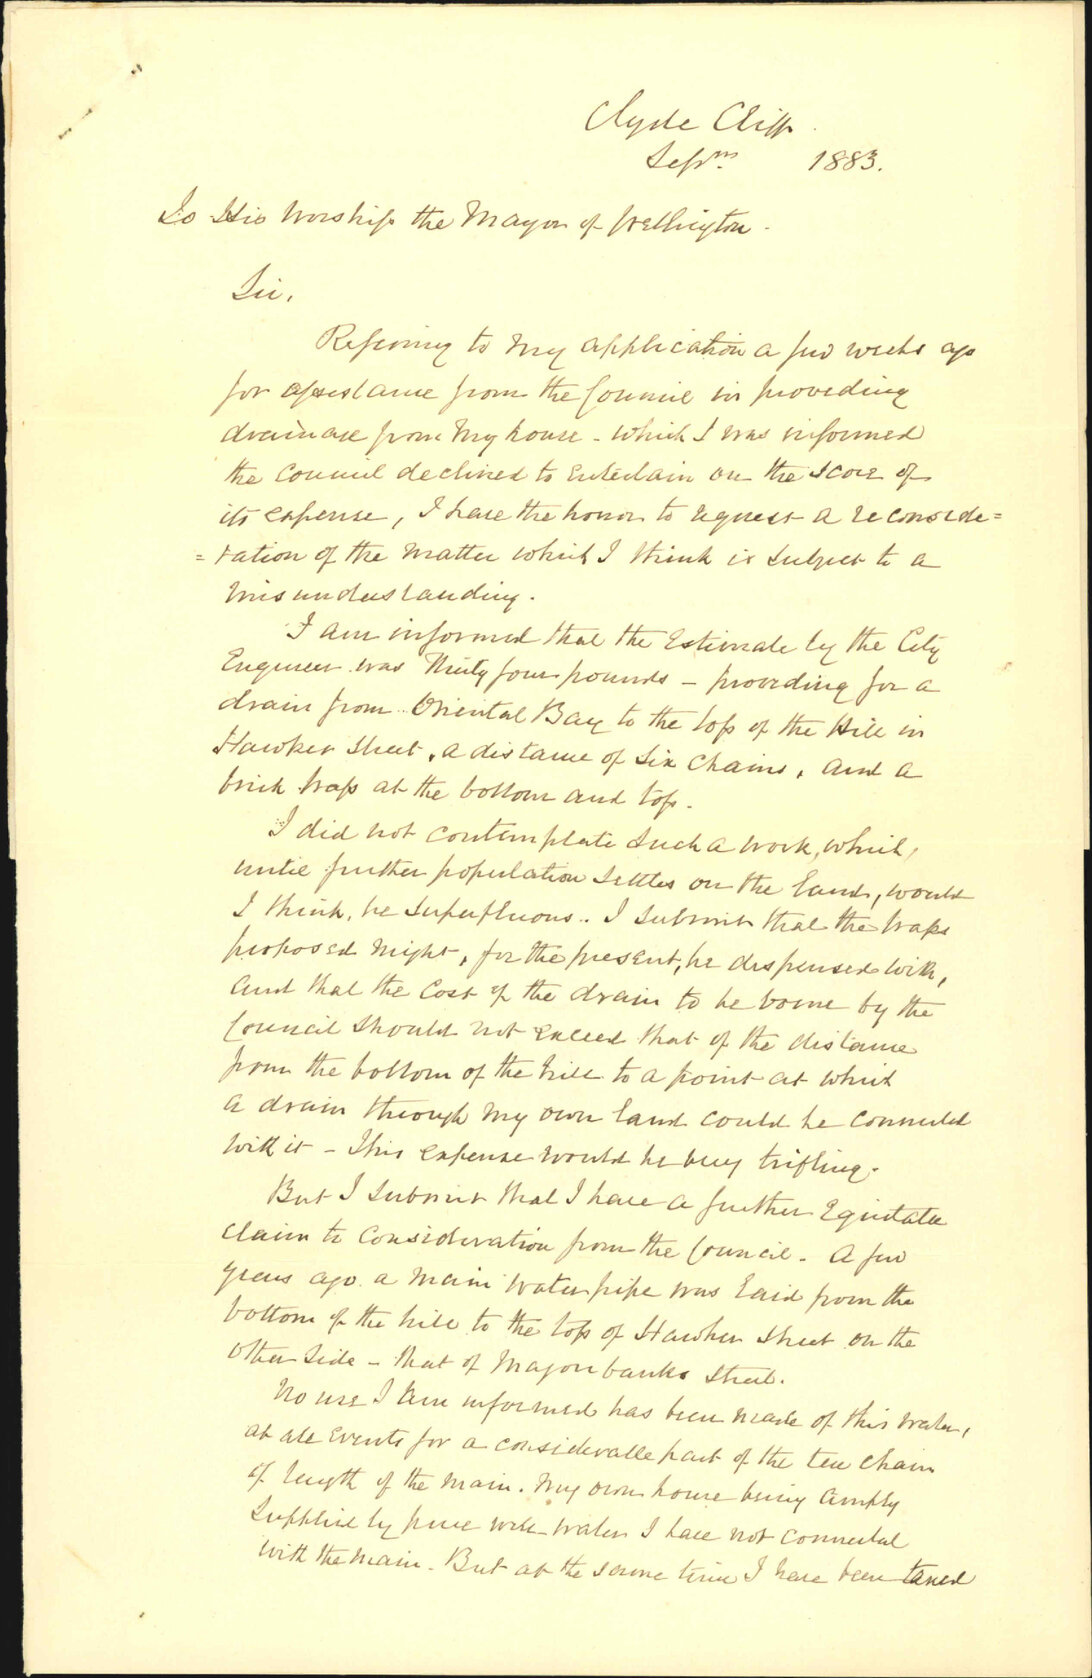 Clyde Cliff.
Septr. 1883.
To His Worship the Mayor of Wellington.
Sir,
Referring to my application a few weeks ago
for assistance from the Council in providing
drainage from my house - which I was informed
the Council declined to entertain on the score of
its expense, I have the honor to request a reconside=
=ration of the matter which I think is subject to a
misunderstanding.
I am informed that the Estimate by the City
Engineer was thirty four pounds - providing for a
drain from Oriental Bay to the top of the Hill in
Hawker Street, a distance of six chains, and a
brick trap at the bottom and top.
I did not contemplate such a work, which,
until further population settles on the land, would
I think, be superfluous. I submit that the traps
proposed might, for the present, be dispensed with,
and that the cost of the drain to be borne by the
Council should not exceed that of the distance
from the bottom of the hill to a point at which
a drain through my own land could be connected
with it - This expense would be very trifling.
But I submit that I have a further Equitable
claim to consideration from the Council. A few
years ago a main water pipe was laid from the
bottom of the hill to the top of Hawker Street on the
other side - that of Majoribanks Street.
No use I am informed has been made of this water,
at all events for a considerable part of the ten chain
of length of the main. My own house being amply
supplied by pure well water I have not connected
with the main. But at the same time I have been taxed